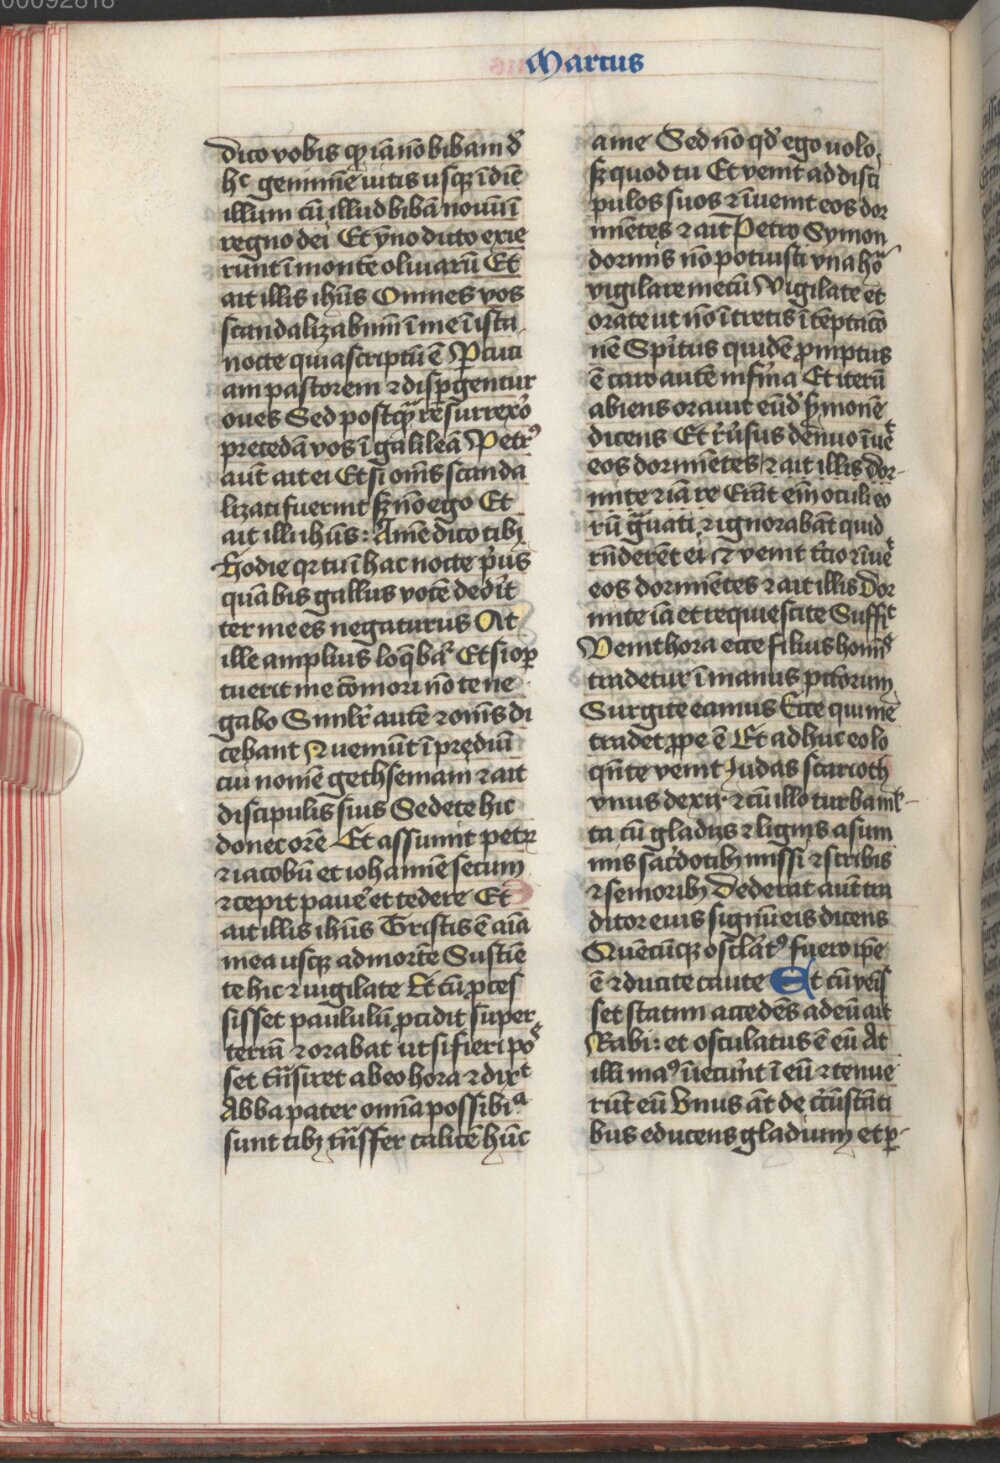 00092818
Marcus
dico vobis qꝛ iā nō bibam d̓
hͨ genimīe uitis usqꝫ ī diē
illum cū illud bibā nouū ī
regno dei Et ẏno dicto exie
runt ī montē oliuarū Et
ait illis ihūs Omnes vos
scandalizabimī ī me ī ista
nocte quia scriptū ē Percuci
am pastorem ⁊ dispergentur
oues Sed postqᷓ resurrexo᷑
precedā vos ī galileā Petrꝰ
aūt ait ei Etsi omīs scanda
lizati fuerint sꝫ nō ego Et
ait illi ihūs: Amē dico tibi
Hodie qꝛ tu ī hac nocte pͥus
quā bis gallus vocē dedīt
ter me es negaturus At
ille amplius loq̄bať Et si opꝛ
tuerit me cōmori nō te ne
gabo Similr̄ autē ⁊ omīs di
cebant Et ueniūt ī predium
cui nomē gethsemani ⁊ ait
discipulis suis Sedete hic
donec orē Et assumit petrꝝ
⁊ iacobū et iohannē secum
⁊ cepit paue᷑ et tedere Et
ait illis ihūs Tristis ē aīa
mea usqꝫ ad mortē Sustīe
te hic ⁊ uigilate Et cū ꝓces
sisset paululū ꝓcidit super
terrā ⁊ orabat ut si fieri poˢ
set tn̄siret ab eo hora ⁊ dixᵗ
Abba pater omīa possibiᵃ
sunt tibi tn̄sfer calicē hūc
a me Sed nō qd̓ ego uolo
sꝫ quod tu Et venit ad disci
pulos suos ⁊ īuenit eos dor
miētes ⁊ ait Petro Symon
dormis nō potuisti vna hoᷓ
vigilare mecū Vigilate et
orate ut nō ītretis ī tēptacō
nē Spīritus quidē ꝓmptus
ē caro autē infͥma Et iterū
abiens orauit eūd̓ s̓monē
dicens Et r̓usus denuo īueᵗ
eos dormiētes ⁊ ait illis dor-
mite ⁊ iā re Erāt em̄ oculi eo
rū gᷓuati ⁊ ignorabāt quid
rn̄derēt ei ⁊ venit t̓cio ⁊ īueᵗ
eos dormiētes ⁊ ait illis Dor
mite iā et requiescite Sufficᵗ
Venit hora ecce filius homīs
tradetur ī manus pctōrum
Surgite eamus Ecce qui mē
tradet ꝓpe ē Et adhuc eo lo
qn̄te venit Judas scarioth
vnus de xij ⁊ cū illo turba ml̄-
ta cū gladijs ⁊ lignis a sum
mis sac̓dotibꝫ missi ⁊ scribis
⁊ senioribꝫ Dederat aūt tra
ditor eius signū eis dicens
Quēcūqꝫ osclāt᷑ꝰ fuero ipē
ē ⁊ ducite caute Et cū veīs
set statim accedēs ad eū ait
Rabi: et osculatus ē eū At
illi maꝰ īiecerūt ī eū ⁊ tenue
rūt eū Vnus āt de c̓cūstāti
bus educens gladium et ꝑ-